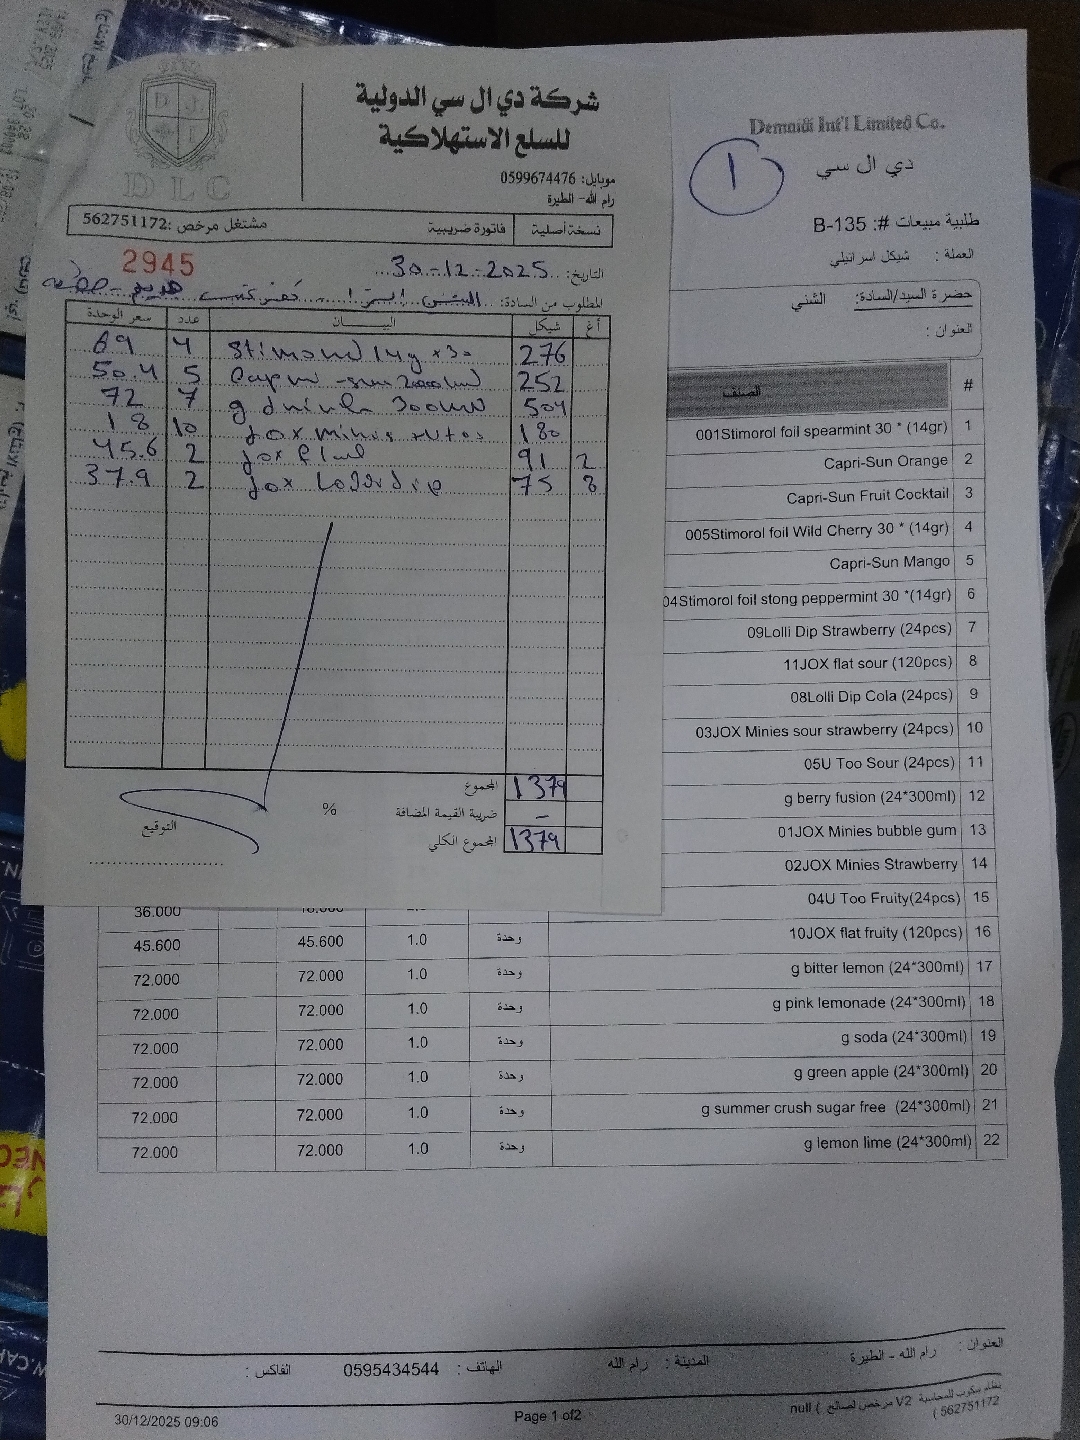 شركة دي ال سي الدولية
للسلع الاستهلاكية
موبايل: 0599674476
رام الله- الطيرة
DLC
نسخة أصلية فاتورة ضريبية مشتغل مرخص :562751172
2945
التاريخ: 30-12-2025
المطلوب من السادة:
أغ شيكل البيـــــان عدد سعر الوحدة
276 Stimorol 14g x30 4 69
252 5 50.4
504 7 72
180 10 18
2 91 jox 2 45.6
8 75 jox 2 37.9
المجموع 1379
ضريبة القيمة المضافة % -
المجموع الكلي 1379
التوقيع
Demaidi Int'l Limited Co.
1
دي ال سي
طلبية مبيعات #: B-135
العملة : شيكل اسرائيلي
حضرة السيد/السادة: الشني
العنوان :
# الصنف
1 001Stimorol foil spearmint 30 * (14gr)
2 Capri-Sun Orange
3 Capri-Sun Fruit Cocktail
4 005Stimorol foil Wild Cherry 30 * (14gr)
5 Capri-Sun Mango
6 04Stimorol foil stong peppermint 30 *(14gr)
7 09Lolli Dip Strawberry (24pcs)
8 11JOX flat sour (120pcs)
9 08Lolli Dip Cola (24pcs)
10 03JOX Minies sour strawberry (24pcs)
11 05U Too Sour (24pcs)
12 g berry fusion (24*300ml)
13 01JOX Minies bubble gum
14 02JOX Minies Strawberry
15 04U Too Fruity(24pcs) 36.000
16 10JOX flat fruity (120pcs) وحدة 1.0 45.600 45.600
17 g bitter lemon (24*300ml) وحدة 1.0 72.000 72.000
18 g pink lemonade (24*300ml) وحدة 1.0 72.000 72.000
19 g soda (24*300ml) وحدة 1.0 72.000 72.000
20 g green apple (24*300ml) وحدة 1.0 72.000 72.000
21 g summer crush sugar free (24*300ml) وحدة 1.0 72.000 72.000
22 g lemon lime (24*300ml) وحدة 1.0 72.000 72.000
العنوان : رام الله - الطيرة المدينة : رام الله الهاتف : 0595434544 الفاكس :
نظام سكوب للمحاسبة V2 مرخص لصالح ( null
562751172 )
Page 1 of2
30/12/2025 09:06